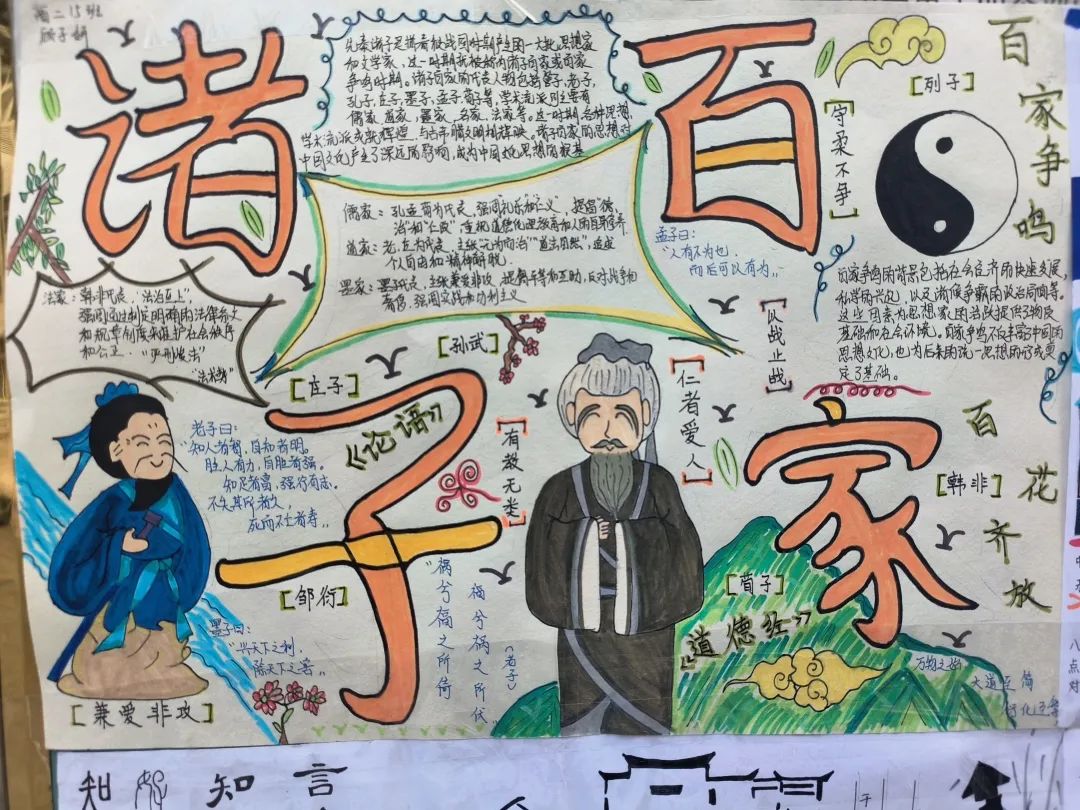 诸子百家
先秦诸子是指春秋战国时期产生的一大批思想家
和文学家，这一时期
争鸣时期。诸子百家的代表人物包括管子、老子、
孔子、庄子、墨子、孟子、荀子等，学术流派则主要有
儒家、道家、墨家、名家、法家等。这一时期，各种思想、
学术流派成就辉煌，与古希腊文明相辉映。诸子百家的思想对
中国文化产生了深远的影响，成为中国文化思想的根基
儒家：孔孟荀为代表，强调礼乐和"仁义"，提倡"德
治"和"仁政"，重视道德伦理教育和人的自身修养
道家：老、庄为代表，主张"无为而治""道法自然"，追求
个人自由和精神解脱。
墨家：墨子代表，主张兼爱非攻，提倡平等和互助，反对战争和
奢侈，强调实践和功利主义
法家：韩非代表，"法治至上"，
强调通过制定明确的法律条文
和规章制度来维护社会秩序
和公正。"严刑峻法"
孟子曰：
"人有不为也，
而后可以有为。"
[列子]
[守柔不争]
百家争鸣
百家争鸣的背景包括社会经济的快速发展，
私学的兴起，以及诸侯争霸的政治局面等。
这些因素为思想家的活跃提供了物质
基础和社会环境。百家争鸣不仅丰富了中国的
思想文化，也为后来的统一思想的形成奠
定了基础。
[以战止战]
[孙武]
[庄子]
《论语》
老子曰：
"知人者智，自知者明。
胜人有力，自胜者强。
知足者富，强行有志。
不失其所者久，
死而不亡者寿。"
[有教无类]
[仁者爱人]
百花齐放
[韩非]
[邹衍]
[荀子]
《道德经》
墨子曰：
"兴天下之利，
除天下之害。"
"祸兮福之所倚
福兮祸之所伏"
（老子）
[兼爱非攻]
万物之始
大道至简
知 知 言